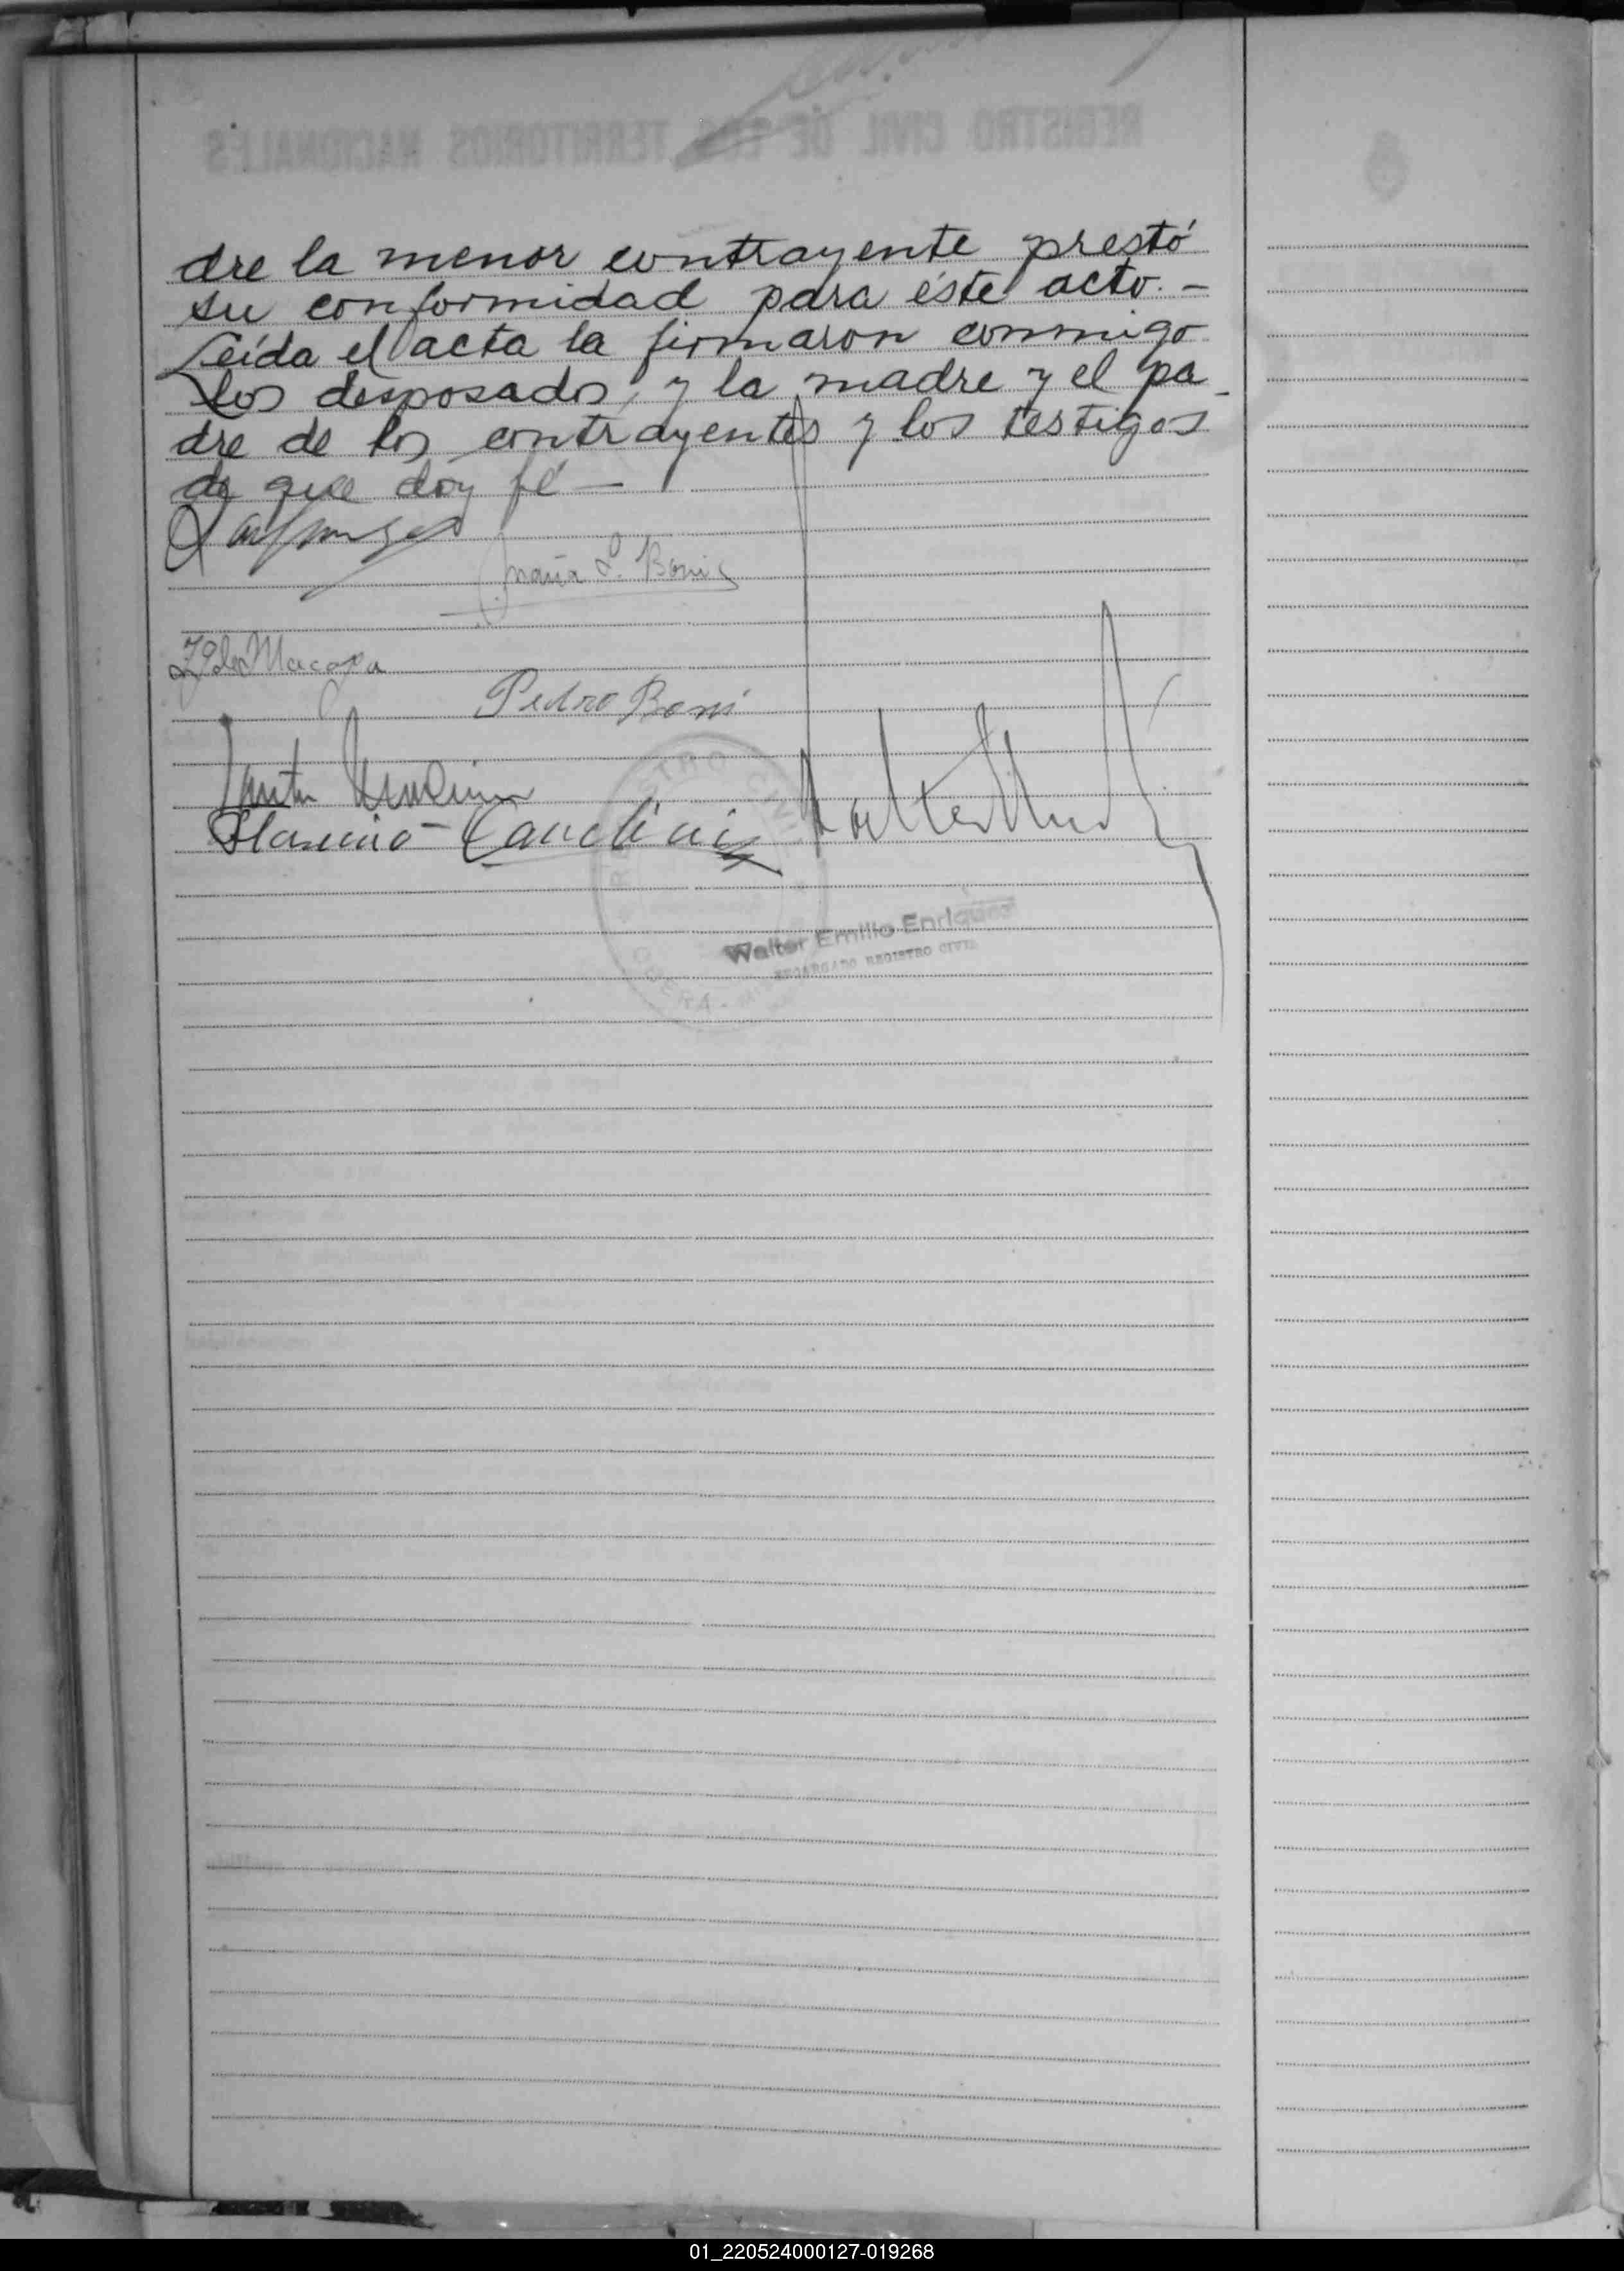 REGISTRO CIVIL DE LOS TERRITORIOS NACIONALES
dre la menor contrayente prestó
su conformidad para éste acto. -
Leída el acta la firmaron conmigo
los desposados, y la madre y el pa-
dre de los contrayentes y los testigos
de que doy fé —
María L. Boni
Pedro Boni
Walter Emilio Enriquez
ENCARGADO REGISTRO CIVIL
01_220524000127-019268